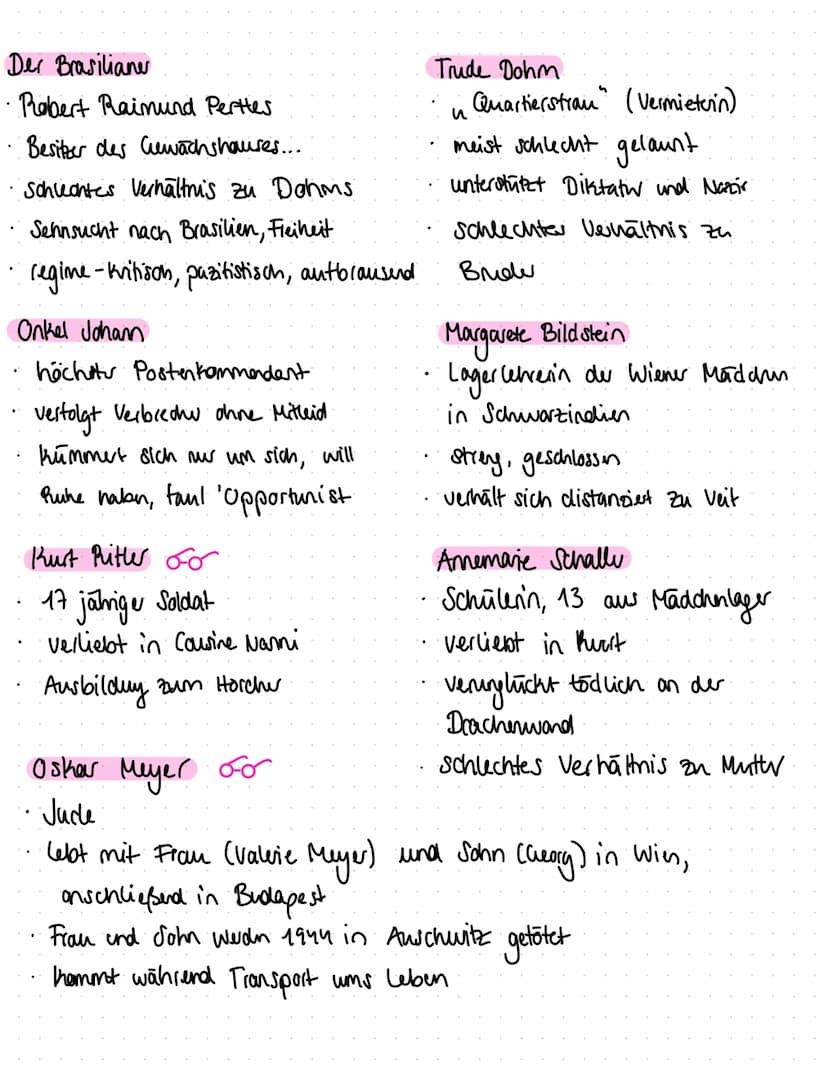 Der Brasilianer
· Robert Raimund Perttes
· Besitzer des Gewächshauses...
· schlechtes Verhältnis zu Dohms
· Sehnsucht nach Brasilien, Freiheit
· regime-kritisch, pazifistisch, aufbrausend
Trude Dohm
· „Quartiersfrau" (Vermieterin)
· meist schlecht gelaunt
· unterstützt Diktatur und Nazis
· schlechtes Verhältnis zu
Bruder
Onkel Johann
· höchster Postenkommandant
· verfolgt Verbrecher ohne Mitleid
· kümmert sich nur um sich, will
Ruhe haben, faul 'Opportunist
Margarete Bildstein
· Lagerlehrerin der Wiener Mädchen
in Schwarzindien
· streng, geschlossen
· verhält sich distanziert zu Veit
Kurt Ritler
· 17 jähriger Soldat
· verliebt in Cousine Nanni
· Ausbildung zum Horcher
Annemarie Schaller
· Schülerin, 13 aus Mädchenlager
· verliebt in Kurt
· verunglückt tödlich an der
Drachenwand
· schlechtes Verhältnis zu Mutter
Oskar Meyer
· Jude
· lebt mit Frau (Valerie Meyer) und Sohn (Georg) in Wien,
anschließend in Budapest
· Frau und Sohn werden 1944 in Auschwitz getötet
· kommt während Transport ums Leben